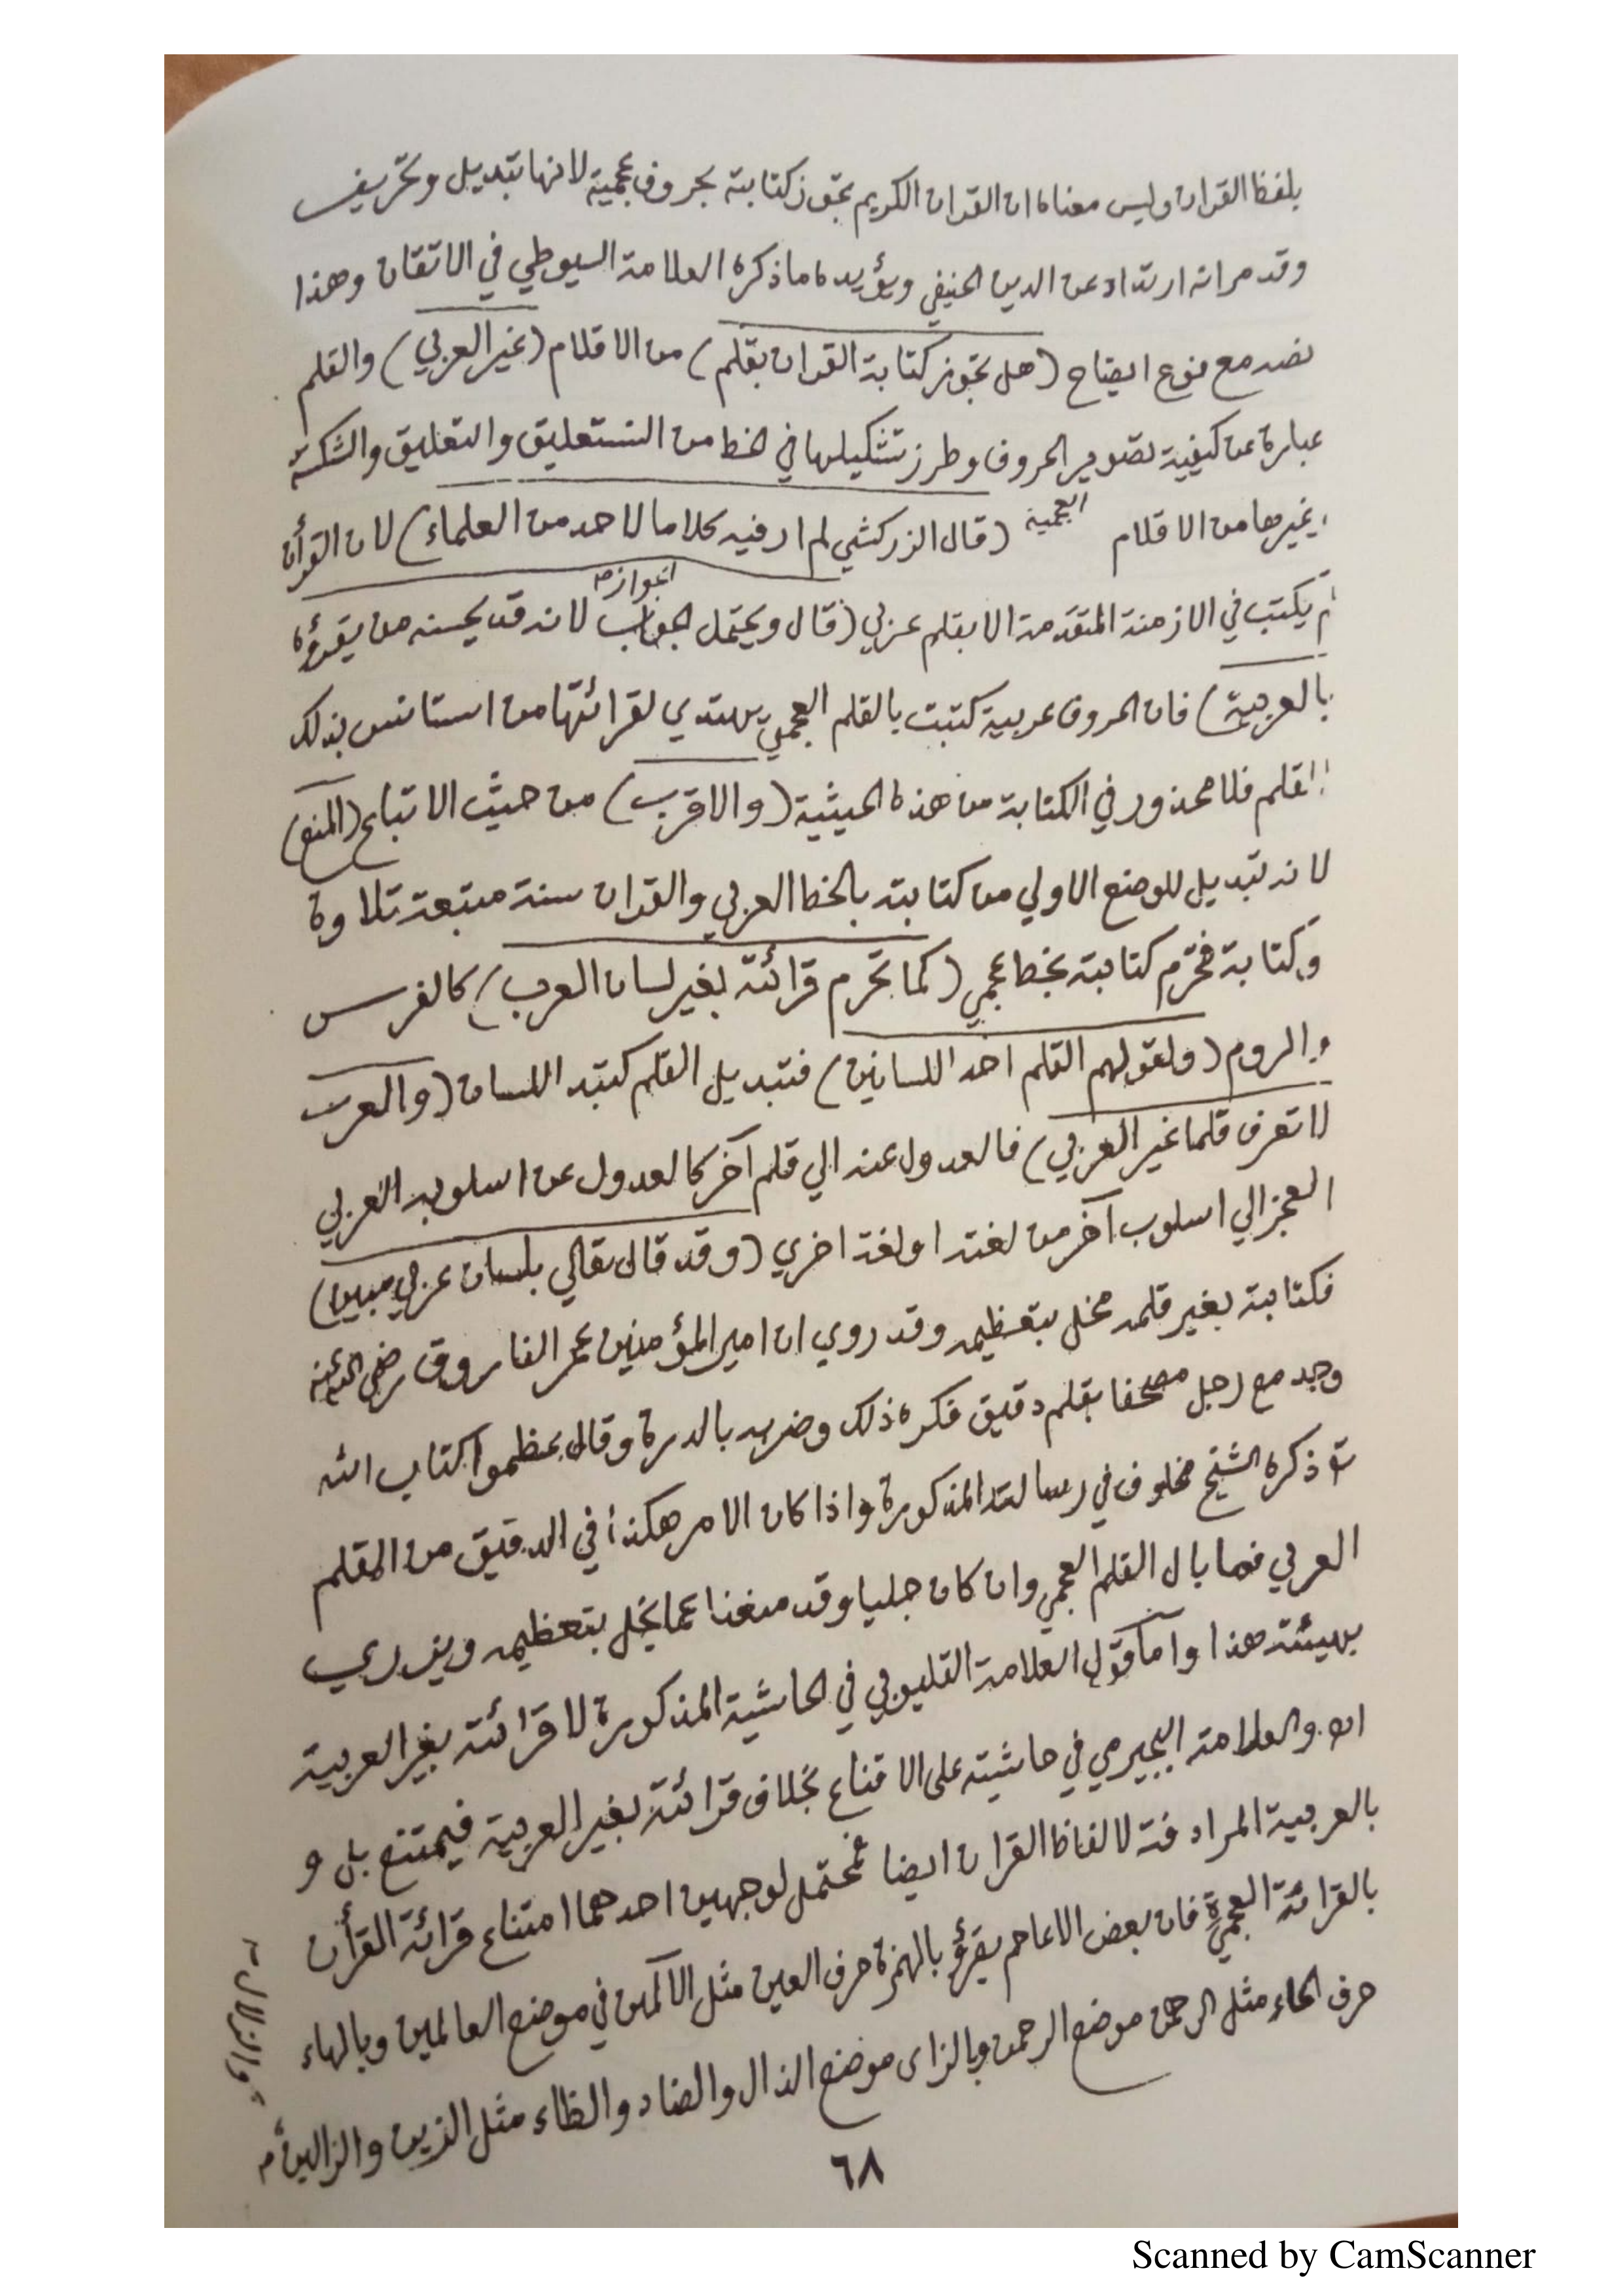 بلفظ القران وليس معناه ان القران الكريم تجوز كتابته بحروف عجمية لانها تبديل وتحريف
وقد مر انه ارتداد عن الدين الحنيفي ويؤيده ما ذكره العلامة السيوطي في الاتقان وهذا
نصه مع نوع ايضاح (هل تجوز كتابة القران بقلم) من الاقلام (غير العربي) والقلم
عبارة عن كيفية تصوير الحروف وطرز تشكيلها في الخط من النستعليق والتعليق والشكسته
وغيرها من الاقلام العجمية (قال الزركشي لم ار فيه كلاما لاحد من العلماء) لان القرأن
لم يكتب في الازمنة المتقدمة الا بقلم عربي (قال ويحتمل الجواز لانه قد يحسنه من يقرؤه
بالعربية) فان الحروف عربية كتبت بالقلم العجمي يهتدي لقرائتها من استانس بذلك
القلم فلا محذور في الكتابة من هذه الحيثية (والاقرب) من حيث الاتباع (المنع)
لانه تبديل للوضع الاولي من كتابته بالخط العربي والقران سنة متبعة تلاوة
وكتابة فتحرم كتابته بخط عجمي (كما تحرم قرائته بغير لسان العرب) كالفرس
والروم (ولقولهم القلم احد اللسانين) فتبديل القلم كتبد اللسان (والعرب
لا تعرف قلما غير العربي) فالعدول عنه الي قلم آخر كالعدول عن اسلوبه العربي
المعجز الي اسلوب آخر من لغته او لغة اخري (وقد قال تعالي بلسان عربي مبين)
فكتابته بغير قلمه مخل بتعظيمه وقد روي ان امير المؤمنين عمر الفاروق رضي الله عنه
وجد مع رجل مصحفا بقلم دقيق فكره ذلك وضربه بالدرة وقال عظموا كتاب الله
ذكره الشيخ مخلوف في رسالته المذكورة واذا كان الامر هكذا في الدقيق من القلم
العربي فما بال القلم العجمي وان كان جليا وقد منعنا عما يخل بتعظيمه ويزدري
بهيئته هذا واما قول العلامة القليوبي في الحاشية المذكورة لا قرائته بغير العربية
اه والعلامة البجيرمي في حاشيته على الاقناع بخلاف قرائته بغير العربية فيمتنع بل و
بالعربية المرادفة لالفاظ القران ايضا فمحتمل لوجهين احدهما امتناع قرائة القرأن
بالقرائة العجمية فان بعض الاعاجم يقرؤ بالهمزة حرف العين مثل الآلمين في موضع العالمين وبالهاء
حرف الحاء مثل الرهمن موضع الرحمن وبالزاى موضع الذال والضاد والظاء مثل الزين والزالين م
والزلال
٦٨
Scanned by CamScanner